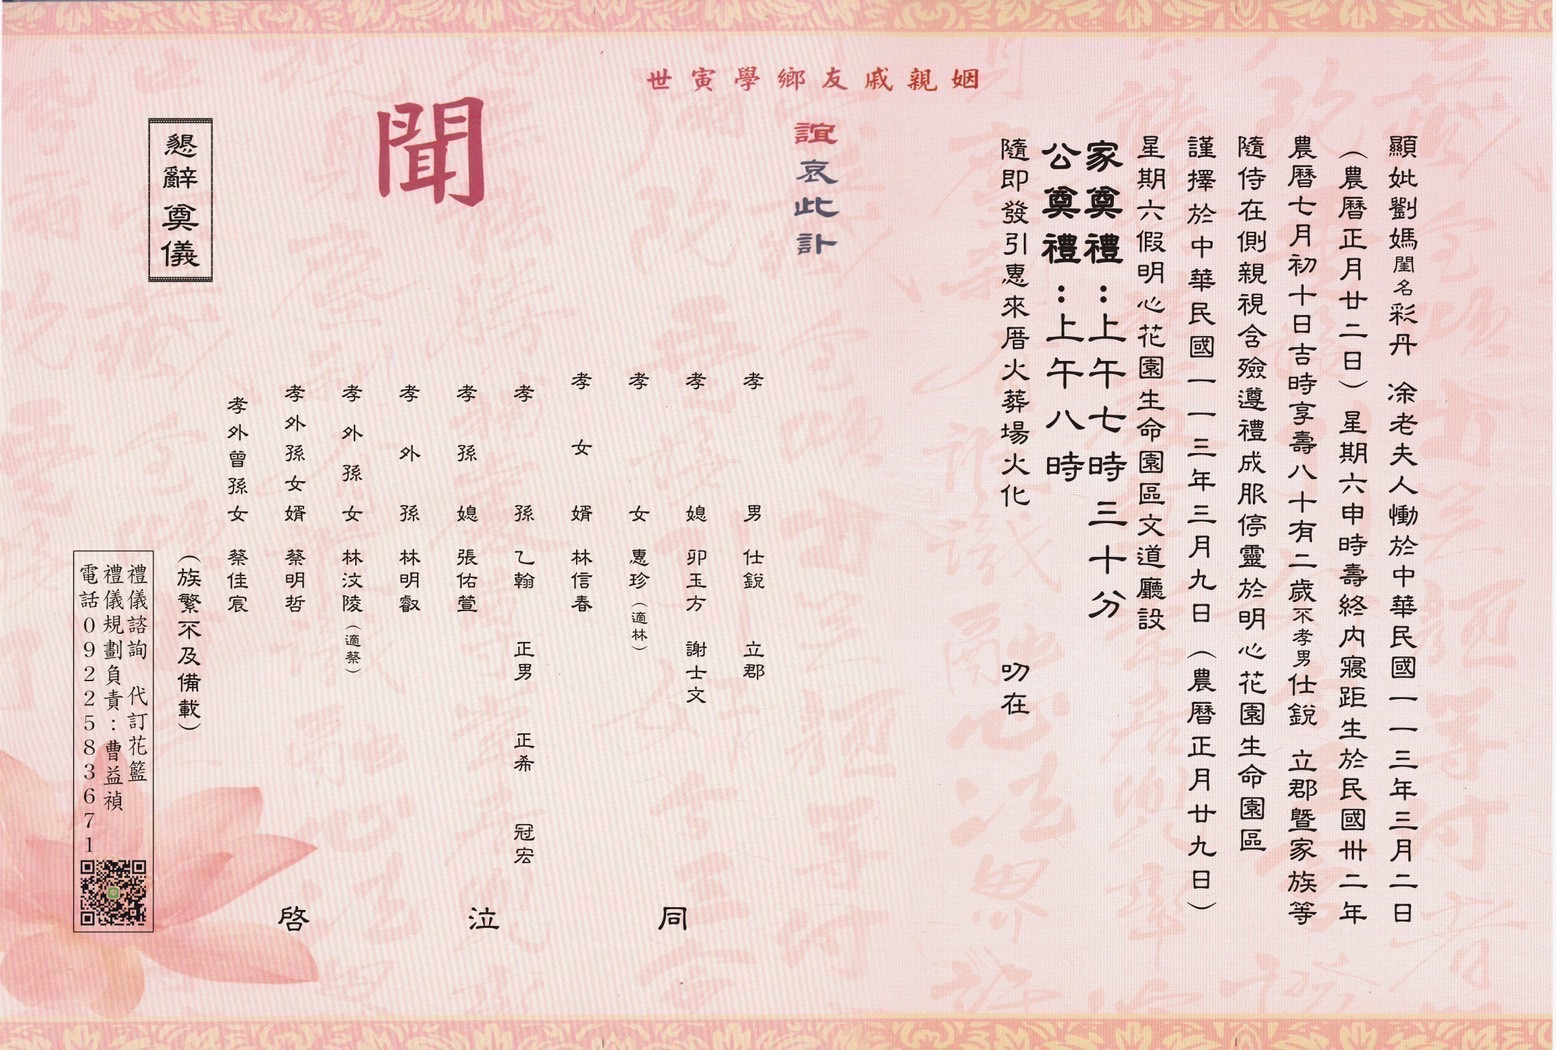 顯妣劉媽閨名彩丹 凃老夫人慟於中華民國一一三年三月二日
（農曆正月廿二日）星期六申時壽終內寢距生於民國卅二年
農曆七月初十日吉時享壽八十有二歲不孝男仕銳 立郡暨家族等
隨侍在側親視含殮遵禮成服停靈於明心花園生命園區
謹擇於中華民國一一三年三月九日（農曆正月廿九日）
星期六假明心花園生命園區文道廳設
家奠禮：上午七時三十分
公奠禮：上午八時
隨即發引惠來厝火葬場火化 叨在
姻親戚友鄉學寅世
誼哀此訃
聞
孝男 仕銳 立郡
孝媳 卯玉方 謝士文
孝女 惠珍（適林）
孝女婿 林信春
孝孫 乙翰 正男 正希 冠宏
孝孫媳 張佑萱
孝外孫 林明叡
孝外孫女 林汶陵（適蔡）
孝外孫女婿 蔡明哲
孝外曾孫女 蔡佳宸
（族繁不及備載）
同泣啓
懇辭奠儀
禮儀諮詢 代訂花籃
禮儀規劃負責：曹益禎
電話0922583671